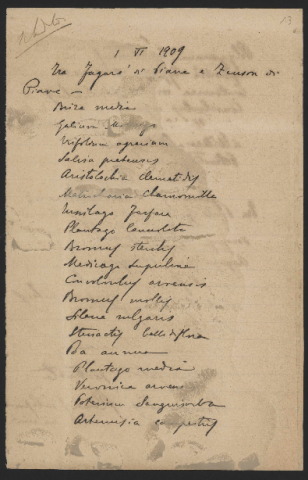 13
1 VI 1909
Tra Fagarè di Piave e Zenson di
Piave –
Briza media
Galium Mollugo
Trifolium agrarium
Salvia pratensis
Aristolochia Clematitis
Matricaria Chamomilla
Tussilago Farfara
Plantago lanceolata
Bromus sterilis
Medicago lupulina
Convolvulus arvensis
Bromus mollis
Silene vulgaris
Stenactis bellidiflora
Poa annua
Plantago media
Veronica arvensis
Poterium Sanguisorba
Artemisia campestris